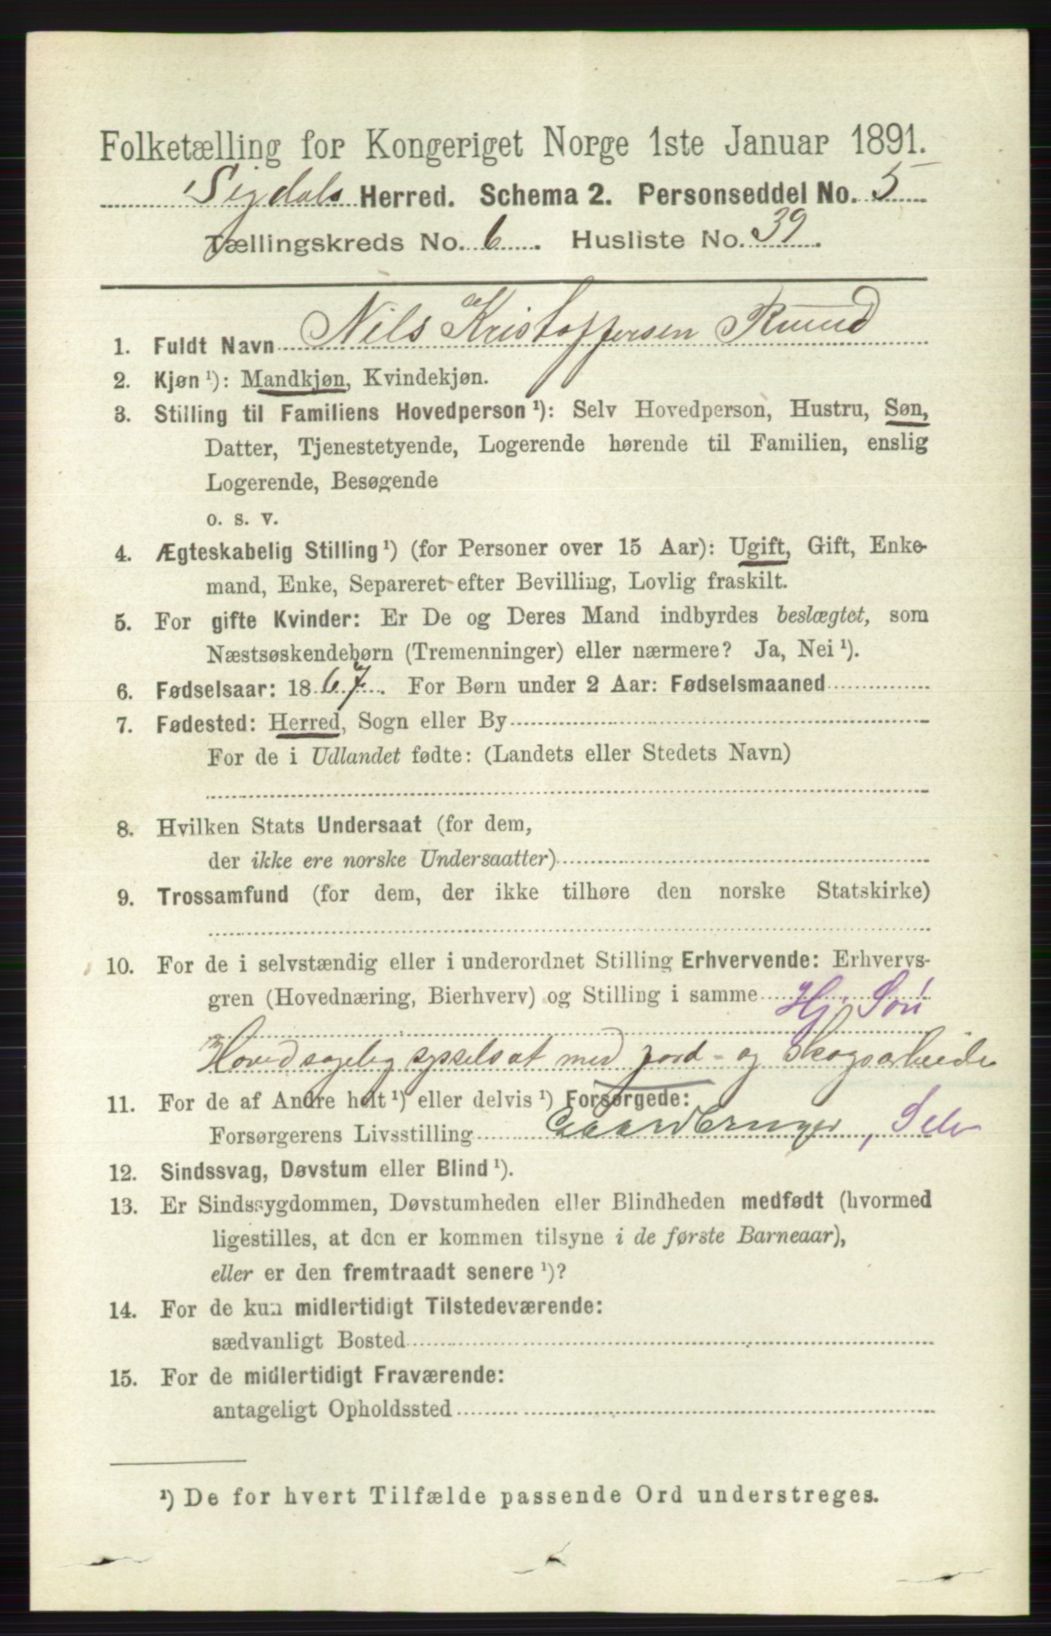 Folketælling for Kongeriget Norge 1ste Januar 1891.
Sigdals Herred. Schema 2. Personseddel No. 5
Tællingskreds No. 6. Husliste No. 39.
1. Fuldt Navn Nils Kristoffersen Ruud
2. Kjøn ¹): Mandkjøn, Kvindekjøn.
3. Stilling til Familiens Hovedperson ¹): Selv Hovedperson, Hustru, Søn,
Datter, Tjenestetyende, Logerende hørende til Familien, enslig
Logerende, Besøgende
o. s. v.
4. Ægteskabelig Stilling ¹) (for Personer over 15 Aar): Ugift, Gift, Enke-
mand, Enke, Separeret efter Bevilling, Lovlig fraskilt.
5. For gifte Kvinder: Er De og Deres Mand indbyrdes beslægtet, som
Næstsøskendebørn (Tremenninger) eller nærmere? Ja, Nei ¹).
6. Fødselsaar: 1867. For Børn under 2 Aar: Fødselsmaaned
7. Fødested: Herred, Sogn eller By
For de i Udlandet fødte: (Landets eller Stedets Navn)
8. Hvilken Stats Undersaat (for dem,
der ikke ere norske Undersaatter)
9. Trossamfund (for dem, der ikke tilhøre den norske Statskirke)
10. For de i selvstændig eller i underordnet Stilling Erhvervende: Erhvervs-
gren (Hovednæring, Bierhverv) og Stilling i samme Hj. Søn
Hovedsagelig sysselsat med jord- og skogsarbeide
11. For de af Andre helt ¹) eller delvis ¹) Forsørgede:
Forsørgerens Livsstilling Gaardbruger, Selv
12. Sindssvag, Døvstum eller Blind ¹).
13. Er Sindssygdommen, Døvstumheden eller Blindheden medfødt (hvormed
ligestilles, at den er kommen tilsyne i de første Barneaar),
eller er den fremtraadt senere ¹)?
14. For de kun midlertidigt Tilstedeværende:
sædvanligt Bosted
15. For de midlertidigt Fraværende:
antageligt Opholdssted
¹) De for hvert Tilfælde passende Ord understreges.